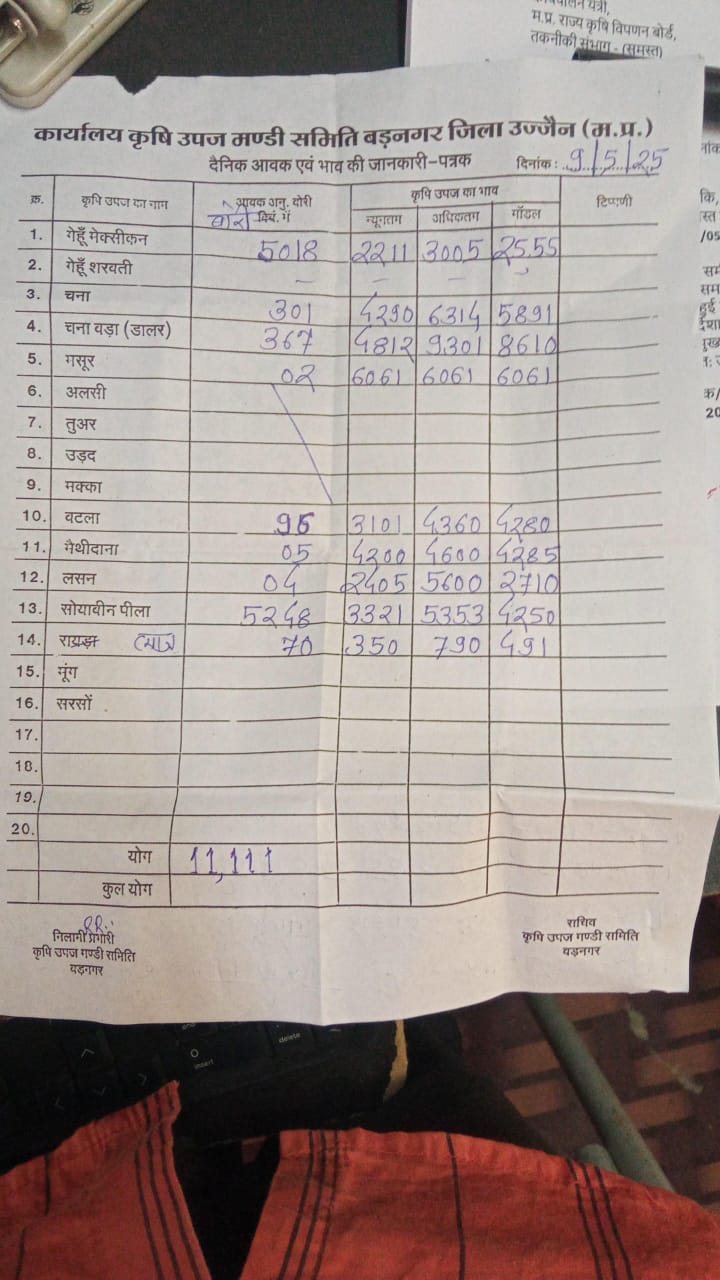 म.प्र. राज्य कृषि विपणन बोर्ड,
तकनीकी संभाग - (समस्त)
कार्यालय कृषि उपज मण्डी समिति बड़नगर जिला उज्जैन (म.प्र.)
दैनिक आवक एवं भाव की जानकारी-पत्रक दिनांक : 9/5/25
क्र. कृषि उपज का नाम आवक अनु. बोरी कृषि उपज का भाव टिप्पणी
बोरी क्विं. में न्यूनतम अधिकतम मॉडल
1. गेहूँ मेक्सीकन 5018 2211 3005 2555
2. गेहूँ शरबती – – – –
3. चना 301 4290 6314 5891
4. चना बड़ा (डालर) 367 4812 9301 8610
5. मसूर 02 6061 6061 6061
6. अलसी
7. तुअर
8. उड़द
9. मक्का
10. वटला 96 3101 4360 4280
11. मैथीदाना 05 4200 4600 4285
12. लसन 04 2405 5600 2710
13. सोयाबीन पीला 5248 3321 5353 4250
14. रायड़ा 70 350 790 491
15. मूंग
16. सरसों
17.
18.
19.
20.
योग 11,111
कुल योग
निलामी प्रभारी
कृषि उपज मण्डी समिति
बड़नगर
सचिव
कृषि उपज मण्डी समिति
बड़नगर
delete
insert